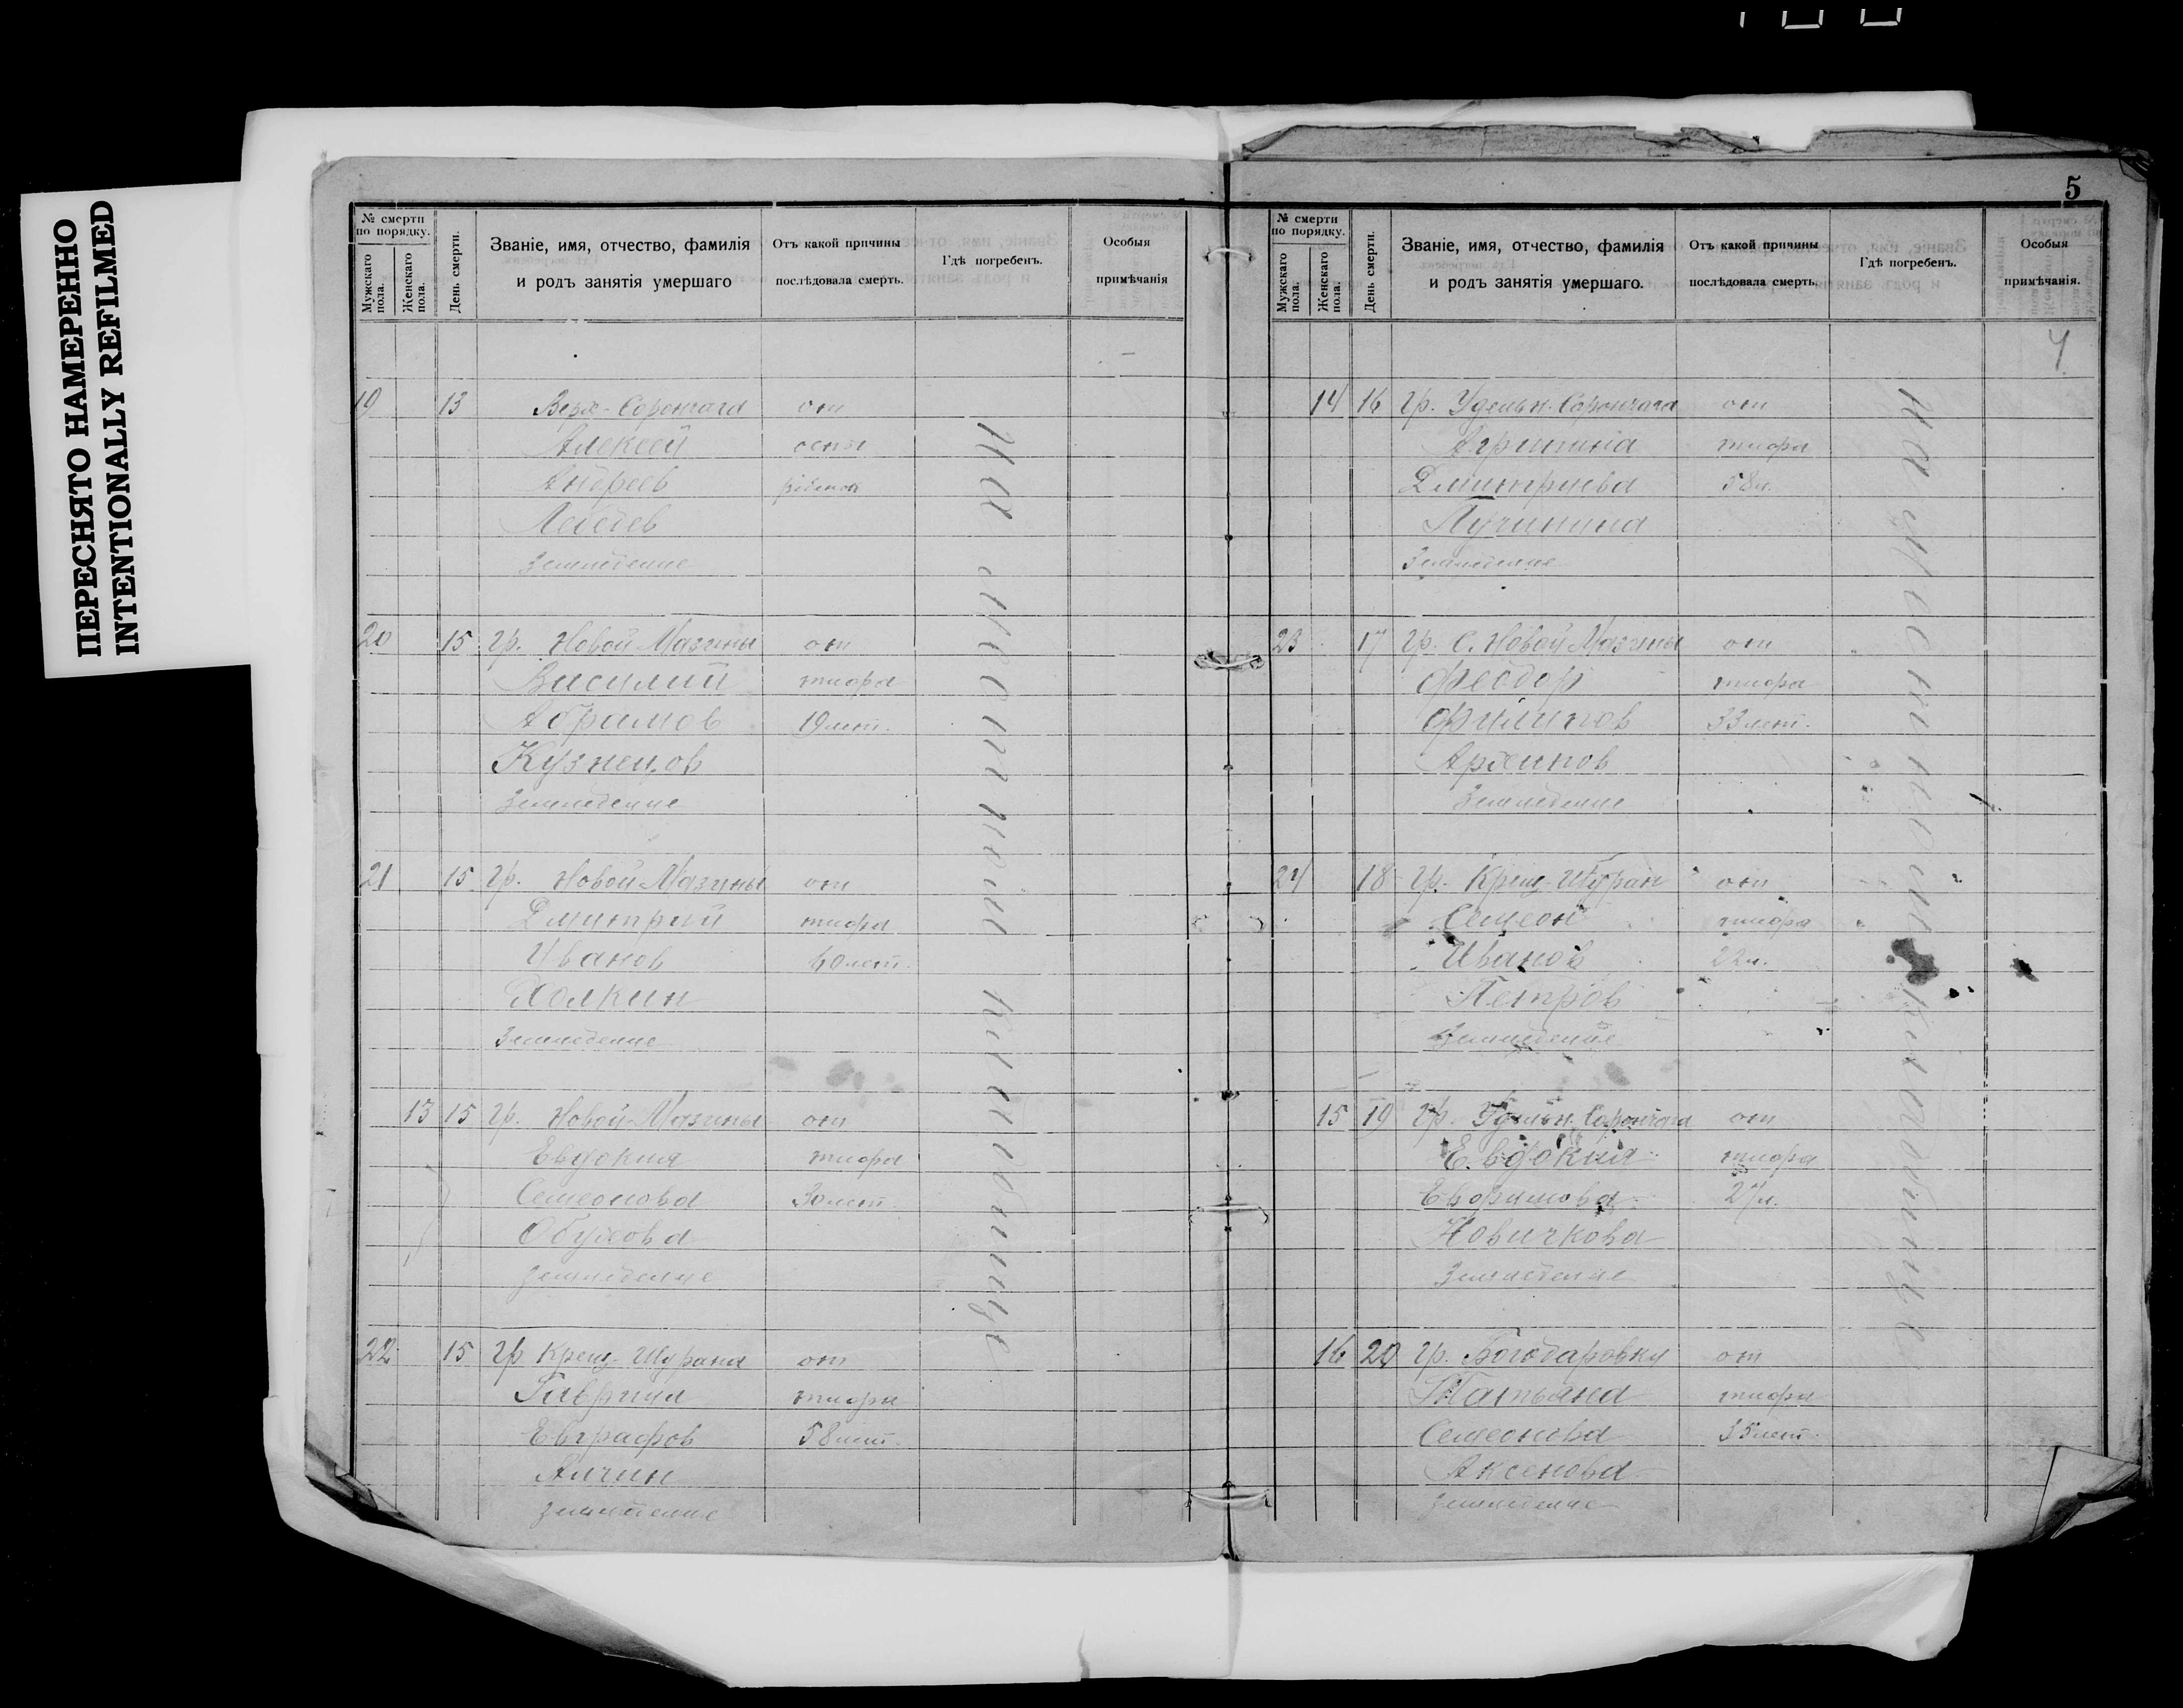 ПЕРЕСНЯТО НАМЕРЕННО
INTENTIONALLY REFILMED
№ смерти по порядку.
Мужскаго пола.
Женскаго пола.
День смерти.
Званіе, имя, отчество, фамилія
и родъ занятія умершаго
Отъ какой причины
послѣдовала смерть.
Гдѣ погребенъ.
Особыя
примѣчанія
19 13 Верх-Сорончага от
Алексей оспы
Андреев ребенок
Лебедев
Земледелие
20 15 гр. Новой Мазины от
Василий тифа
Абрамов 19 лет.
Кузнецов
Земледелие
21 15 гр. Новой Мазины от
Дмитрий тифа
Иванов 40 лет.
Холкин
Земледелие
13 15 гр. Новой Мазины от
Евдокия тифа
Семеонова 30 лет
Обухова
Земледелие
22 15 гр Крещ-Шурана от
Гавриил тифа
Евграфов 58 лет.
Аличин
Земледелие
На местном кладбище
5
№ смерти по порядку.
Мужскаго пола.
Женскаго пола.
День смерти.
Званіе, имя, отчество, фамилія
и родъ занятія умершаго.
Отъ какой причины
послѣдовала смерть.
Гдѣ погребенъ.
Особыя
примѣчанія.
14 16 гр. Удельн. Сорончага от
Агрипина тифа
Димитриева 58 л.
Лучинина
Земледелие
23 17 гр. С. Новой Мазины от
Феодор тифа
Филипов 33 лет.
Архипов
Земледелие
24 18 гр. Крещ-Шуран от
Семеон тифа
Иванов 22 л.
Петров
Земледелие
15 19 гр. Удельн. Сорончага от
Евдокия тифа
Ефимова 27 л.
Новичкова
Земледелие
16 20 гр. Богодаровку от
Татьяна тифа
Семеонова 35 лет.
Аксенова
Земледелие
На местном кладбище